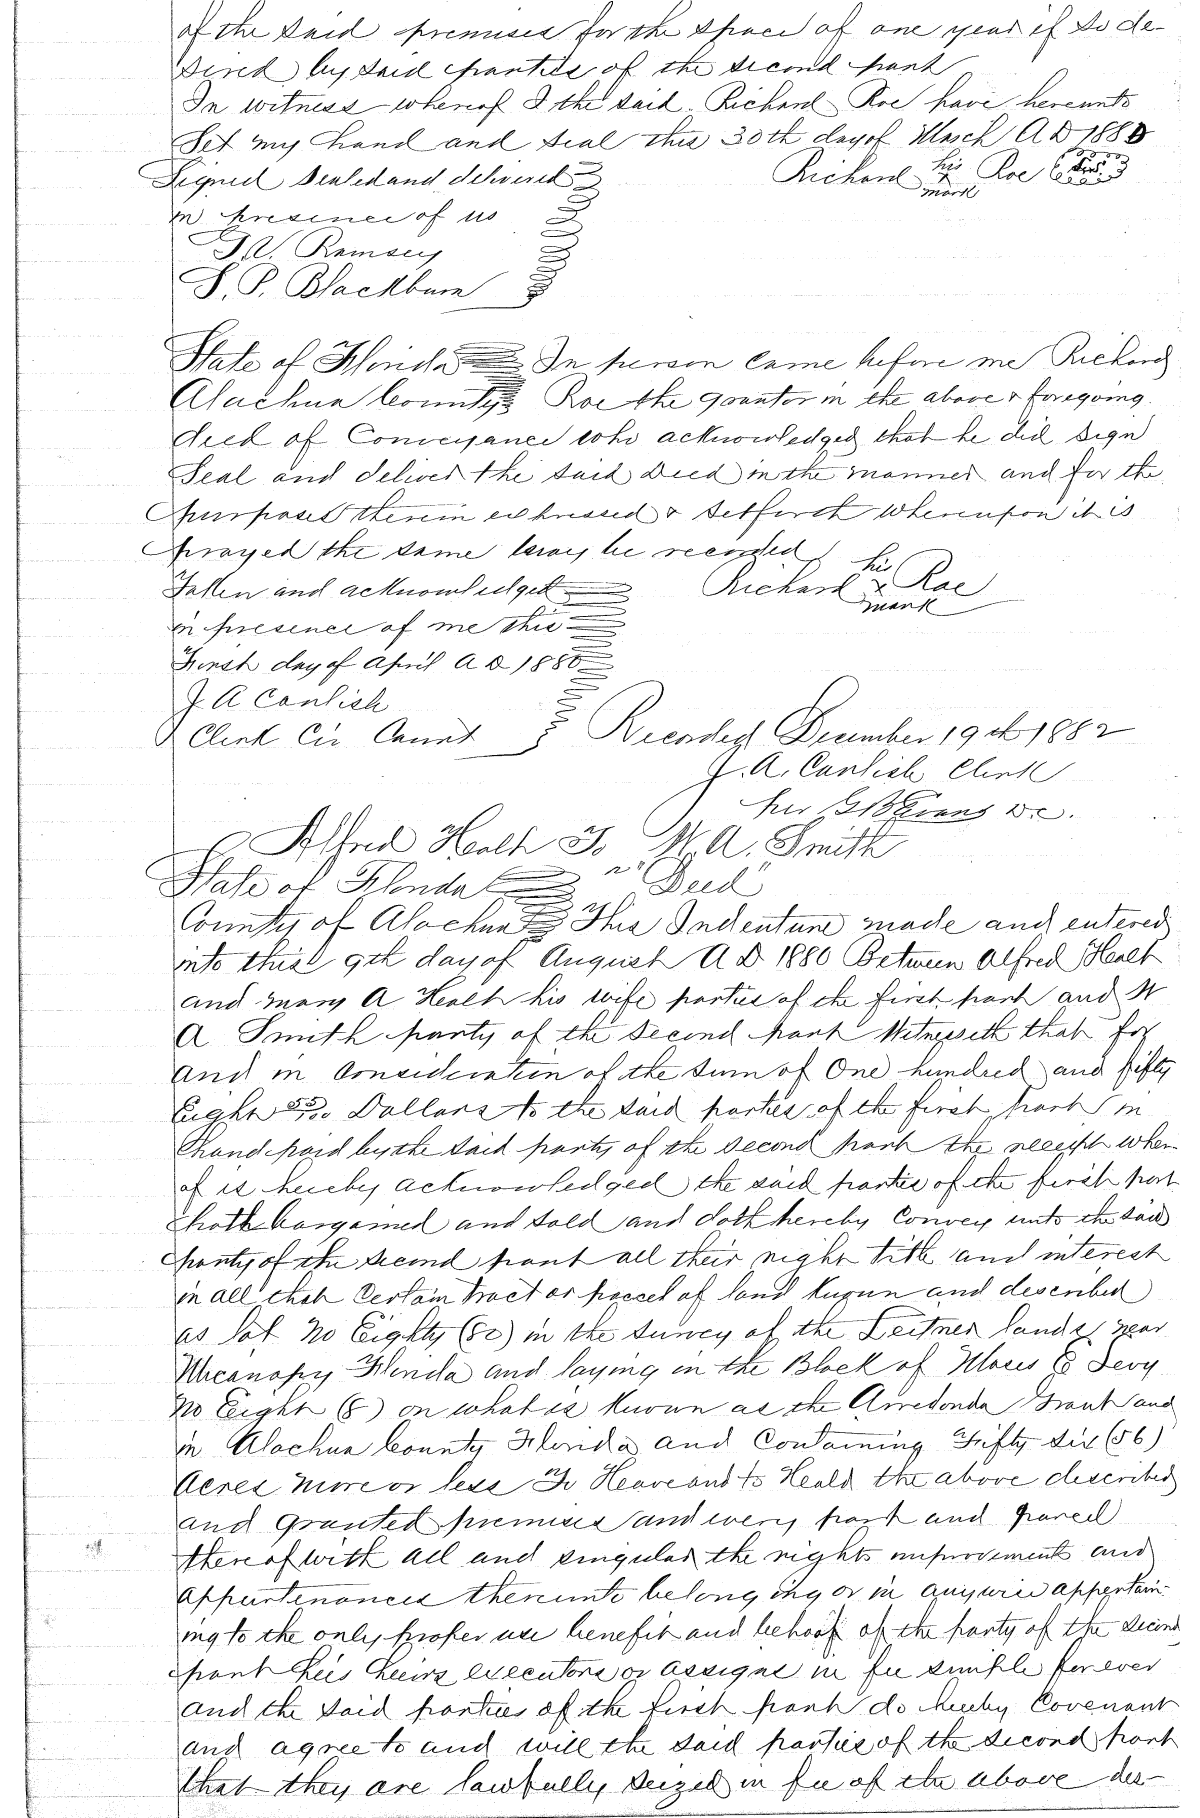 of the said premises for the space of one year if so de-
sired by said parties of the second part
In witness whereof I the said Richard Roe have hereunto
Set my hand and seal this 30th day of March A D 1880
Signed Sealed and delivered Richard his x mark Roe
in presence of us
Ramsey
S. P. Blackburn
State of Florida In person came before me Richard
Alachua County Roe the grantor in the above & foregoing
deed of Conveyance who acknowledged that he did sign
Seal and deliver the said Deed in the manner and for the
purposes therein expressed & setforth whereupon it is
prayed the same may be recorded
Taken and acknowledged Richard his x mark Roe
in presence of me this
First day of April A D 1880
J. A Carlisle
Clerk Cir Court Recorded December 19th 1882
J. A. Carlisle Clerk
per Evans D.C.
Alfred Healt To W. A. Smith
State of Florida "Deed"
County of Alachua This Indenture made and entered
into this 9th day of August A D 1880 Between Alfred Healt
and Mary A Healt his wife parties of the first part and W
A Smith party of the second part Witnesseth that for
and in Consideration of the sum of One hundred and fifty
Eight Dollars to the said parties of the first part in
hand paid by the said party of the second part the receipt where
of is hereby acknowledged the said parties of the first part
hath bargained and sold and doth hereby Convey unto the said
party of the second part all their right title and interest
in all that Certain tract or parcel of land known and described
as lot No Eighty (80) in the survey of the Leitner lands near
Micanopy Florida and laying in the Block of Moses E Levy
No Eight (8) on what is known as the Arredonda Grant and
in Alachua County Florida and Containing Fifty six (56)
Acres more or less To Heave and to Heald the above described
and granted premises and every part and parcel
thereof with all and singular the rights improvements and
appurtenances thereunto belonging or in anywise appertain-
ing to the only proper use benefit and behoof of the party of the second
part heis heeirs executors or assigns in fee simple forever
and the said parties of the first part do hereby Covenant
and agree to and will the said parties of the second part
that they are lawfully seized in fee of the above des-